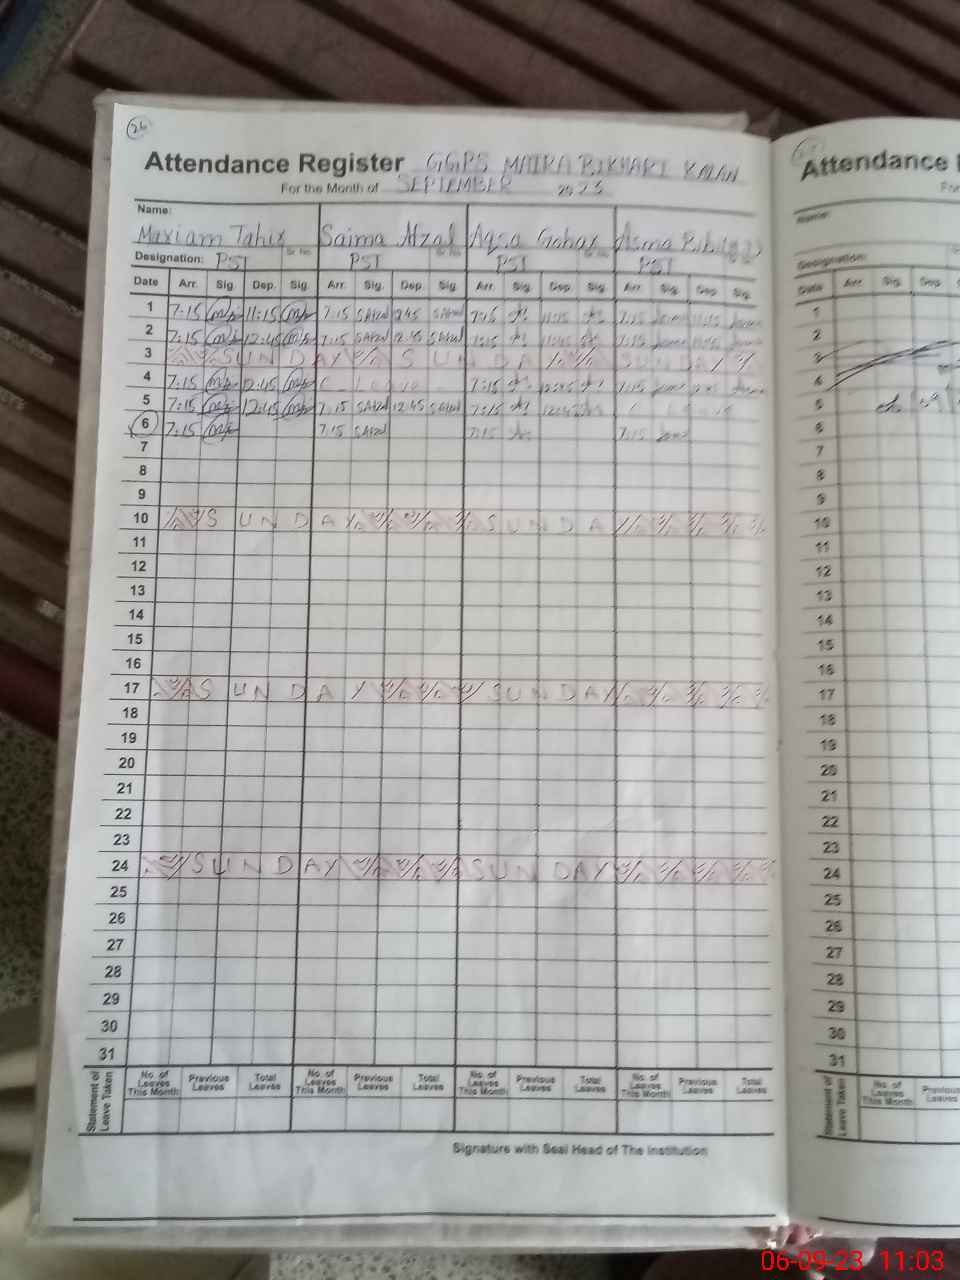 26
Attendance Register GGPS MAIRA BIKHARI KALAN
For the Month of SEPTEMBER 2023
Name:
Mariam Tahir Saima Afzal Aqsa Gohar Asma Bibi
Designation: PST PST PST PST
Date Arr. Sig. Dep. Sig. Arr. Sig. Dep. Sig. Arr. Sig. Dep. Sig. Arr. Sig. Dep. Sig.
1 7:15 11:15 7:15 SAfzal SAfzal 7:15 11:15 7:15
2 7:15 12:45 7:15 SAfzal 12:45 SAfzal 7:15 7:15
3 SUNDAY SUNDAY SUNDAY
4 7:15 12:45 C Leave 7:15 12:45 7:15
5 7:15 12:45 7:15 SAfzal 12:45 SAfzal 7:15 12:45
6 7:15 7:15 SAfzal 7:15 7:15
7
8
9
10 SUNDAY SUNDA
11
12
13
14
15
16
17 SUNDAY SUNDAY
18
19
20
21
22
23
24 SUNDAY SUNDAY
25
26
27
28
29
30
31
Statement of Leave Taken
No. of Leaves This Month Previous Leaves Total Leaves No. of Leaves This Month Previous Leaves Total Leaves No. of Leaves This Month Previous Leaves Total Leaves No. of Leaves This Month Previous Leaves Total Leaves
Signature with Seal Head of The Institution
Attendance
For
Name:
Designation:
Date Arr. Sig. Dep.
1
2
3
4
5
6
7
8
9
10
11
12
13
14
15
16
17
18
19
20
21
22
23
24
25
26
27
28
29
30
31
Statement of Leave Taken
No. of Leaves This Month Previous Leaves
06-09-23 11:03